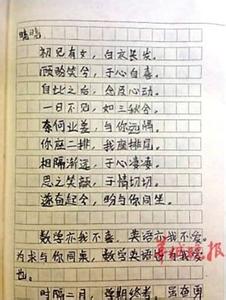 晓晓:
初见有女，白衣长发。
顾盼笑兮，于心自喜。
自此之后，念念心动。
一日不见，如三秋兮。
奈何业差，与你远隔。
你座二排，我座排尾。
相隔渐远，于心凄凄。
思之笑靥，于情切切。
遂奋起兮，盼与你同坐。
数学亦我不喜，英语亦我不爱。
为求与你同桌，数学英语
也。
时隔二月，学期终考，虽奋勇